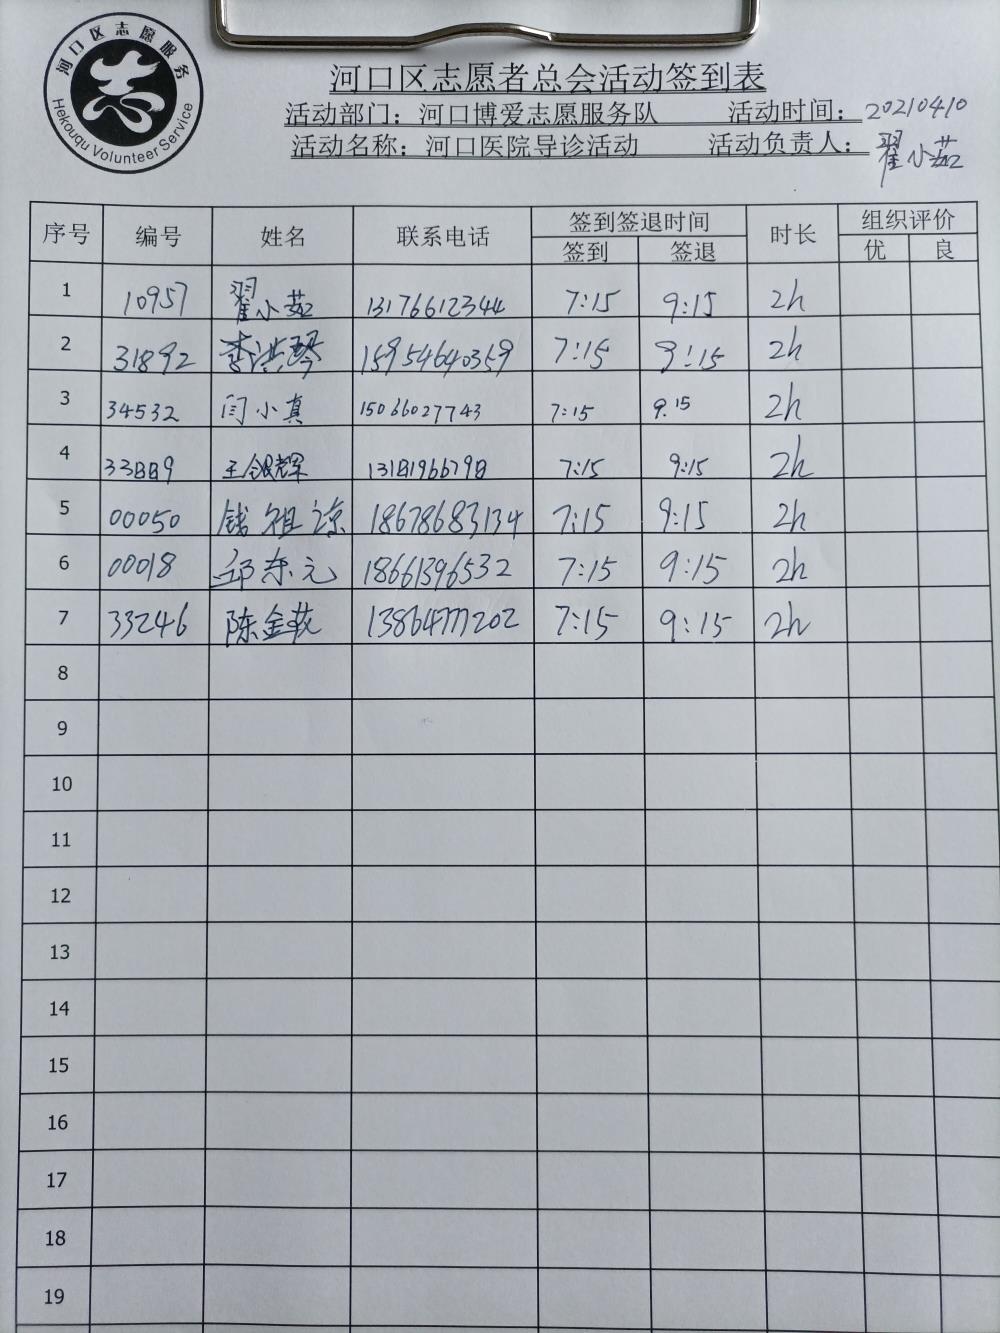 河口区志愿服务
Hekouqu Volunteer Service
志
河口区志愿者总会活动签到表
活动部门：河口博爱志愿服务队 活动时间：20210410
活动名称：河口医院导诊活动 活动负责人：翟小茹
序号 编号 姓名 联系电话 签到签退时间 时长 组织评价
签到 签退 优 良
1 10957 翟小茹 13176612344 7:15 9:15 2h
2 31892 李洪琴 15954640359 7:15 9:15 2h
3 34532 闫小真 15066027743 7:15 9.15 2h
4 33889 王银辉 13181966798 7:15 9:15 2h
5 00050 钱祖凉 18678683134 7:15 9:15 2h
6 00018 邱东元 18661396532 7:15 9:15 2h
7 33246 陈金花 13864777202 7:15 9:15 2h
8
9
10
11
12
13
14
15
16
17
18
19